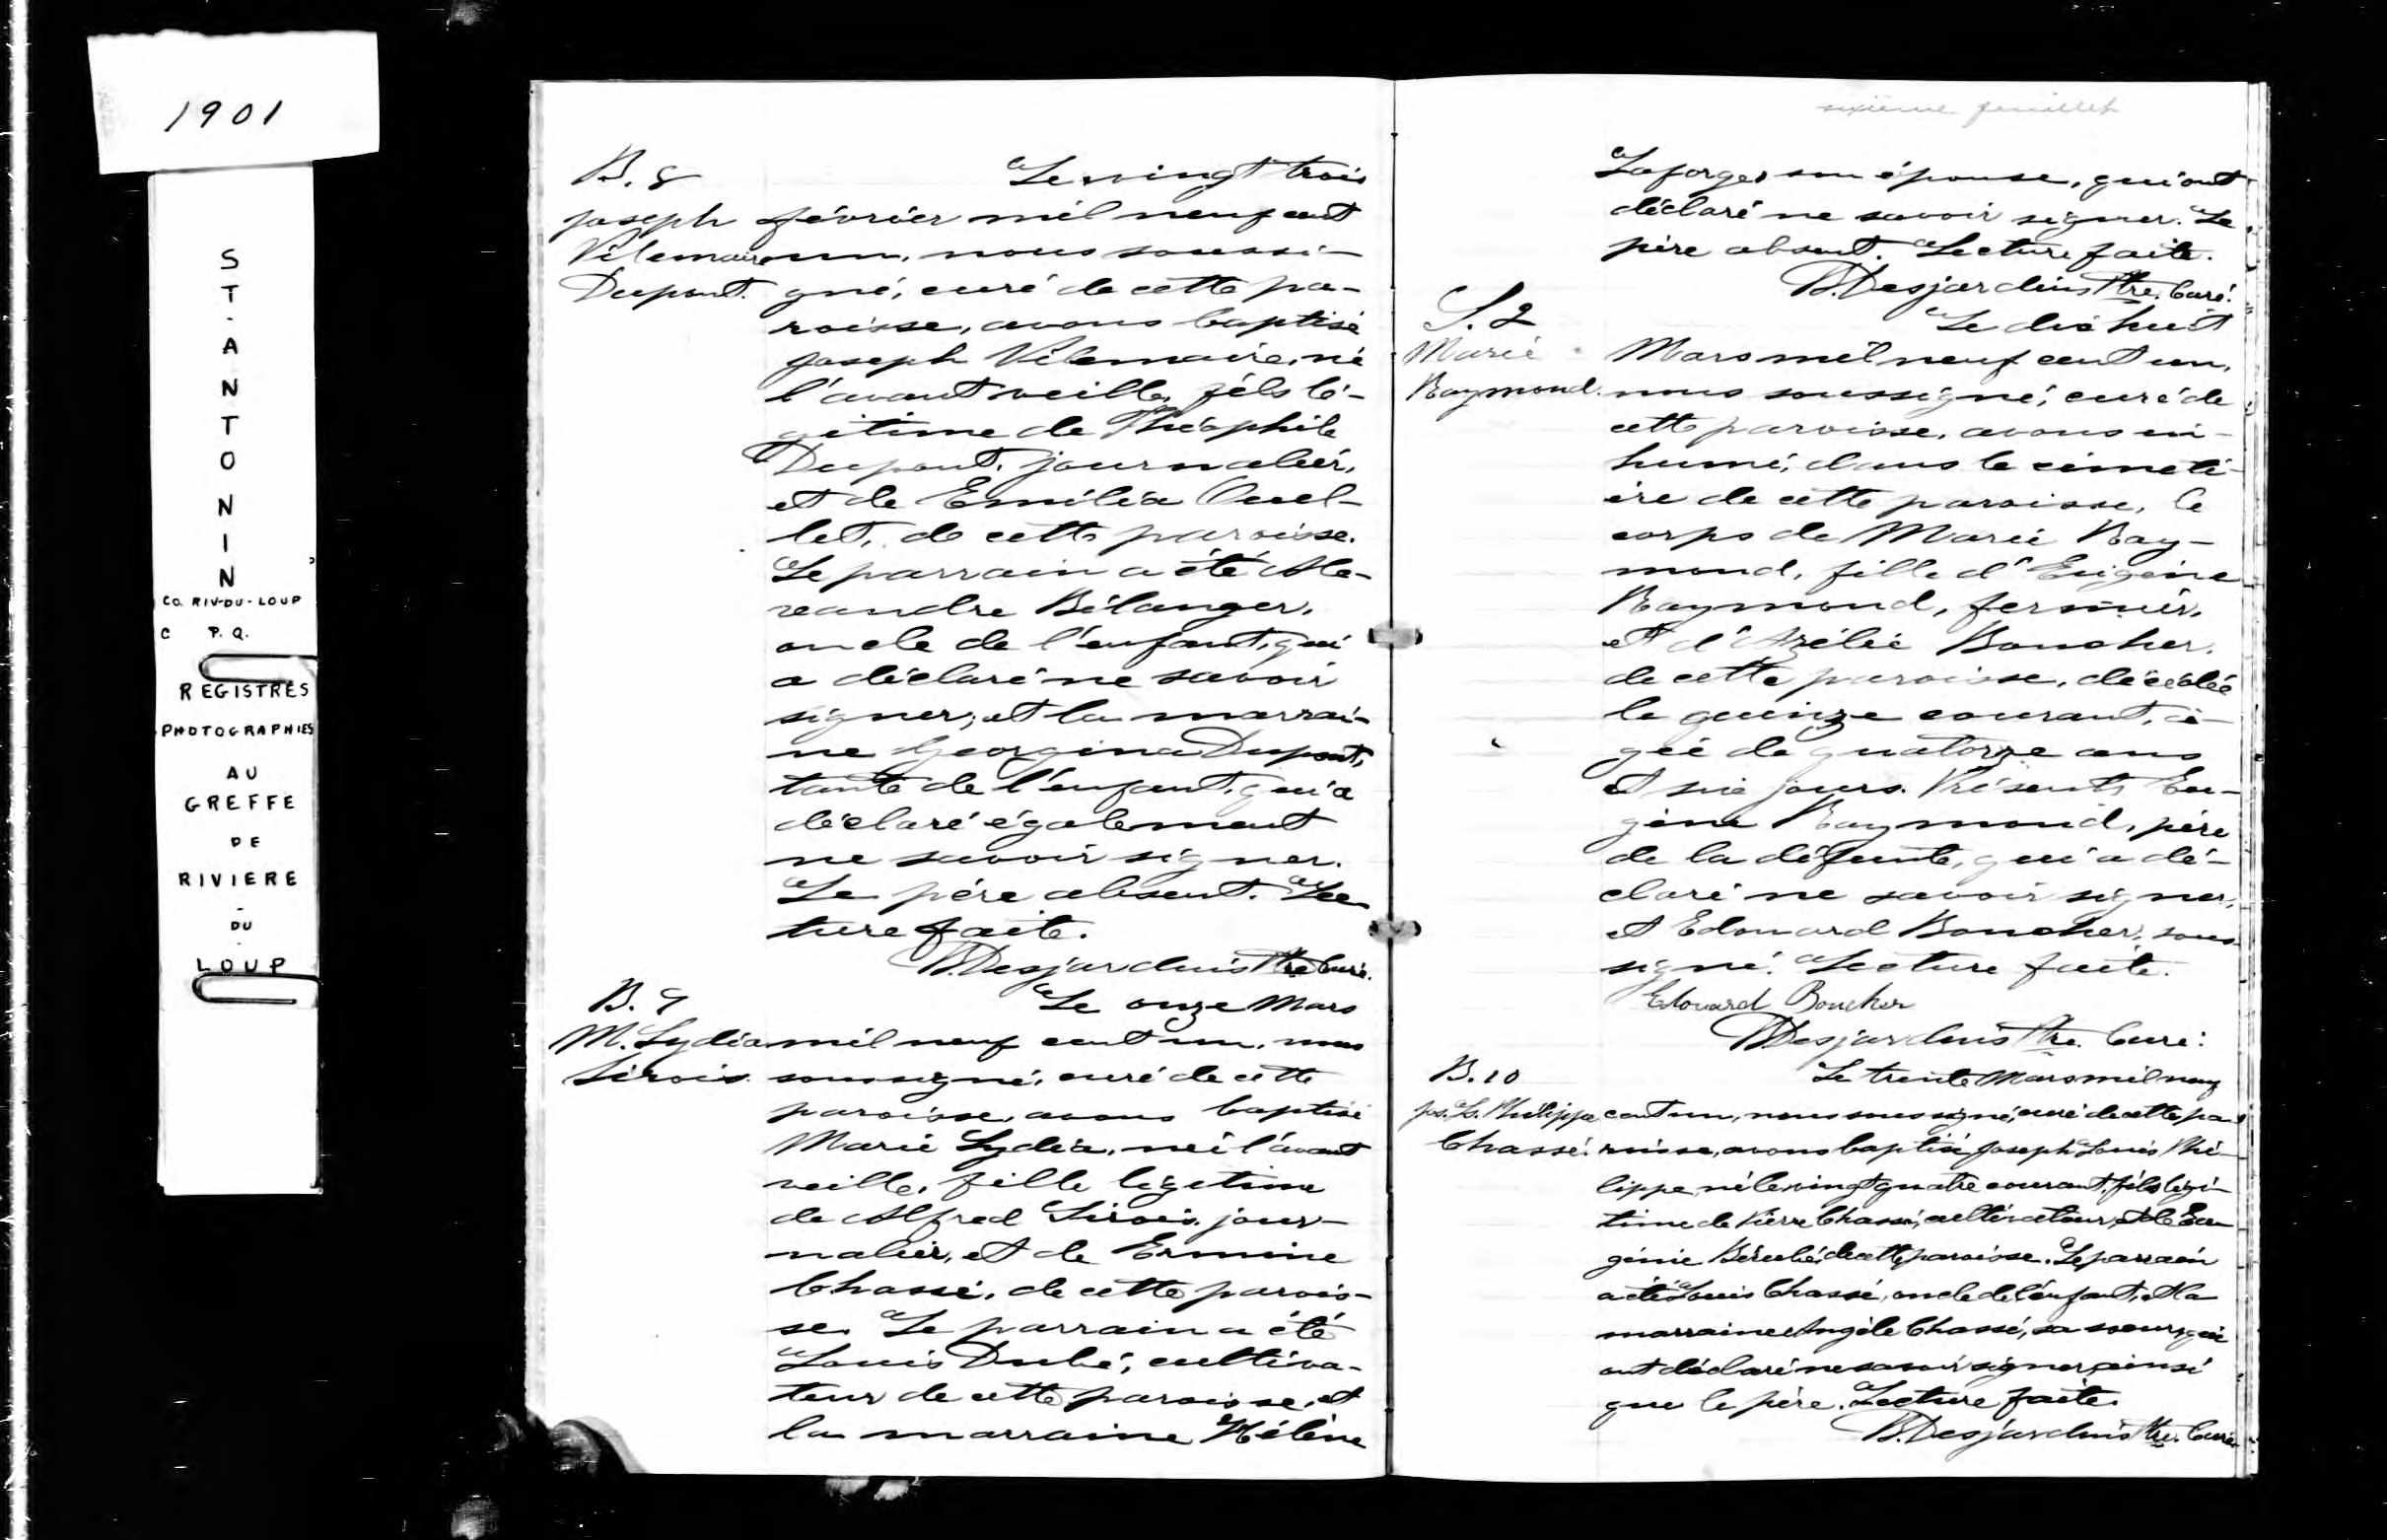 1901
ST-ANTONIN
CO. RIV-DU-LOUP
C P.Q.
REGISTRES
PHOTOGRAPHIES
AU
GREFFE
DE
RIVIERE
-
DU
-
LOUP
B. 8
Joseph
Vilemaire
Dupont.
Le vingt trois
février mil neuf cent
un, nous soussi-
gné, curé de cette pa-
roisse, avons baptisé
Joseph Vilemaire, né
l'avant veille, fils lé-
gitime de Théophile
Dupont, journalier,
et de Emilia Ouel-
let, de cette paroisse.
Le parrain a été Ale-
xandre Bélanger,
oncle de l'enfant, qui
a déclaré ne savoir
signer, et la marrai-
ne Georgina Dupont,
tante de l'enfant, qui a
déclaré également
ne savoir signer.
Le père absent. Lec-
ture faite.
B. Desjardins Ptre Curé.
B. 9
M. Lydia
Sirois.
Le onze Mars
mil neuf cent un, nous
soussigné, curé de cette
paroisse, avons baptisé
Marie Lydia, née l'avant
veille, fille légitime
de Alfred Sirois, jour-
nalier, et de Ermine
Chassé, de cette parois-
se. Le parrain a été
Louis Dubé, cultiva-
teur de cette paroisse, et
la marraine Hélène
sixième feuillet
Laforge, son épouse, qui ont
déclaré ne savoir signer. Le
père absent. Lecture faite.
B. Desjardins Ptre. Curé.
S. 2
Marie
Raymond.
Le dix huit
Mars mil neuf cent un,
nous soussigné, curé de
cette paroisse, avons in-
humé, dans le cimeti-
ère de cette paroisse, le
corps de Marie Ray-
mond, fille d'Eugène
Raymond, fermier,
et d'Azélie Boucher,
de cette paroisse, décédée
le quinze courant, â-
gée de quatorze ans
et six jours. Présents Eu-
gène Raymond, père
de la défunte, qui a dé-
claré ne savoir signer,
et Edouard Boucher, sous-
signé. Lecture faite.
Edouard Boucher
B. Desjardins Ptre. Curé.
B. 10
Jos. Ls. Philippe
Chassé.
Le trente Mars mil neuf
cent un, nous soussigné, curé de cette pa-
roisse, avons baptisé Joseph Louis Phi-
lippe, né le vingt quatre courant, fils légi-
time de Pierre Chassé, cultivateur, et de Eu-
génie Bérubé, de cette paroisse. Le parrain
a été Louis Chassé, oncle de l'enfant, et la
marraine Angèle Chassé, sa soeur, qui
ont déclaré ne savoir signer, ainsi
que le père. Lecture faite.
B. Desjardins Ptre. Curé.